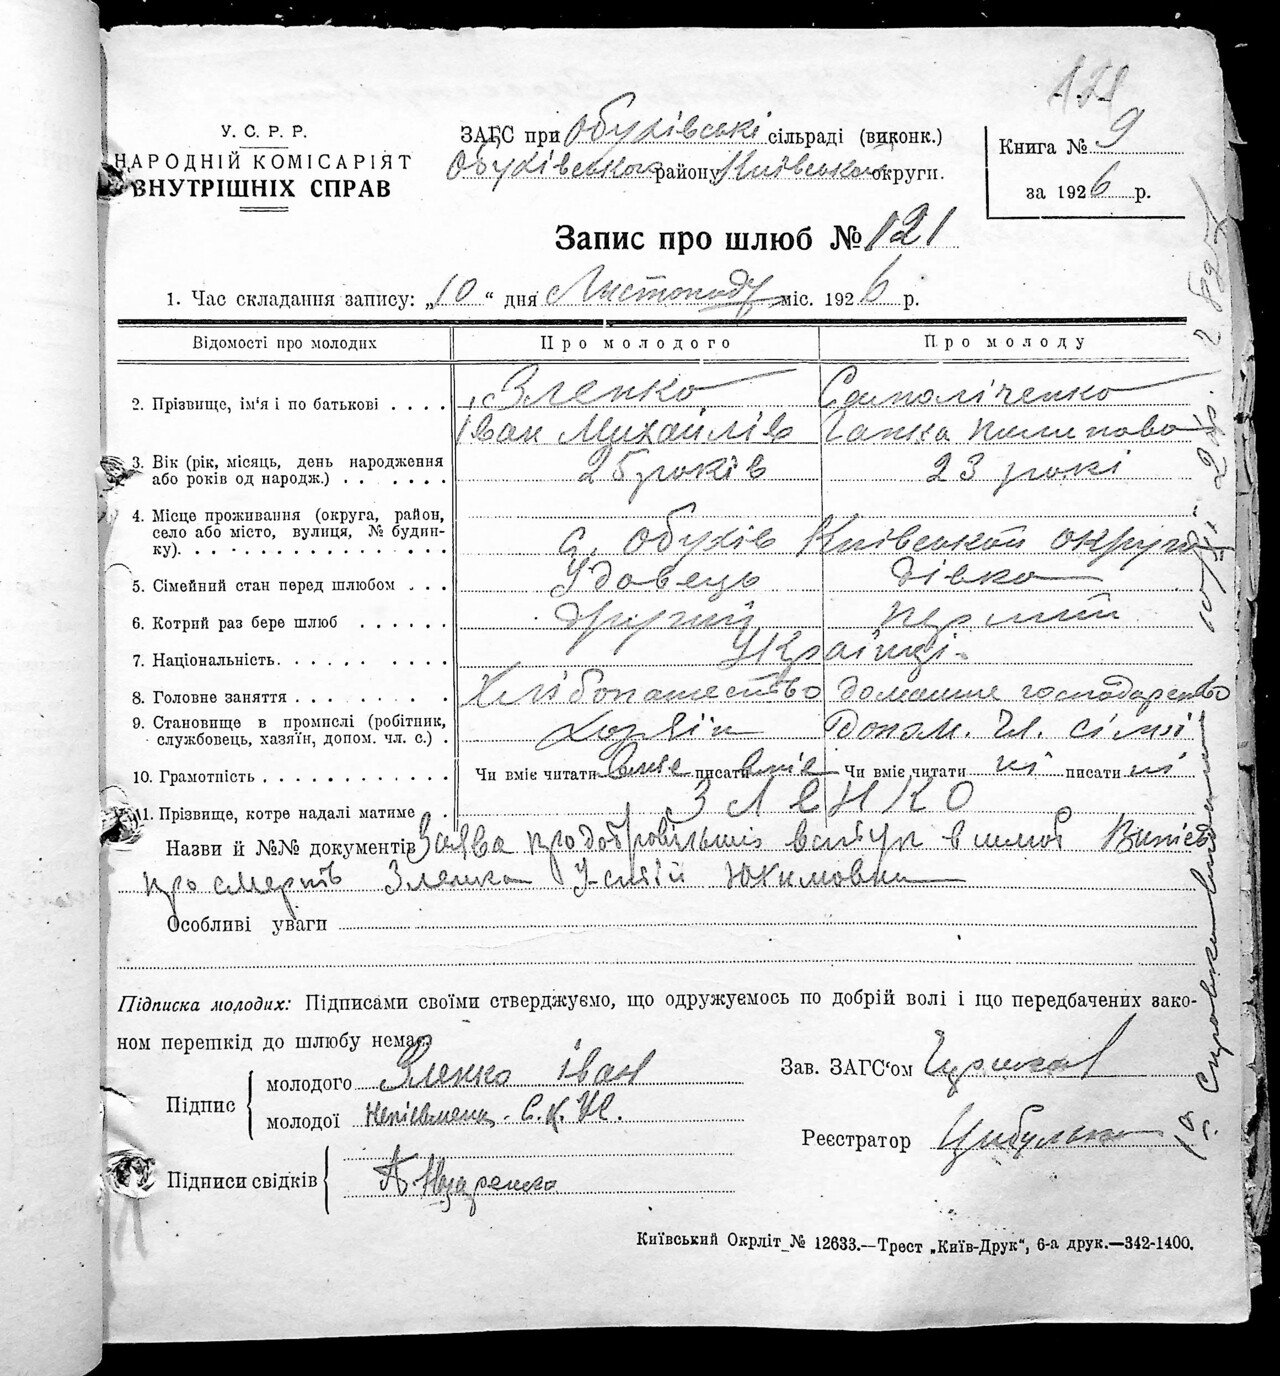 121
У. С. Р. Р.
НАРОДНІЙ КОМІСАРІЯТ
ВНУТРІШНІХ СПРАВ
ЗАГС при Обухівські сільраді (виконк.)
Обухівського району Київської округи.
Книга № 9
за 1926 р.
Запис про шлюб № 121
1. Час складання запису: „10“ дня Листопаду міс. 1926 р.
Відомості про молодих Про молодого Про молоду
2. Прізвище, ім'я і по батькові . . . . Зленко Самоліченко
Іван Михайлів Гапка Пилипова
3. Вік (рік, місяць, день народження
або років од народж.) . . . . . . 26 років 23 рокі
4. Місце проживання (округа, район,
село або місто, вулиця, № будин-
ку). . . . . . . . . . . . . . . с. Обухів Київської округи
5. Сімейний стан перед шлюбом . . . Удовець дівка
6. Котрий раз бере шлюб . . . . . . другий перший
7. Національність. . . . . . . . . . . Українці
8. Головне заняття . . . . . . . . . . Хлібопашество домашне господарство
9. Становище в промислі (робітник,
службовець, хазяїн, допом. чл. с.) . Хазяїн Допом. чл. сімї
10. Грамотність . . . . . . . . . . . . Чи вміє читати вміє писати вміє Чи вміє читати ні писати ні
11. Прізвище, котре надалі матиме . . ЗЛЕНКО
Назви й №№ документів Заява про добровільний вступ в шлюб Випись
про смерть Зленка Устиї Юхимовни
Особливі уваги
Підписка молодих: Підписами своїми стверджуємо, що одружуємось по добрій волі і що передбачених зако-
ном перешкід до шлюбу немає.
Підпис
молодого Зленко Іван
молодої
Зав. ЗАГС'ом
Реєстратор Цибулько
Підписи свідків А Назаренко
Київський Окрліт № 12633.—Трест „Київ-Друк“, 6-а друк.—342-1400.